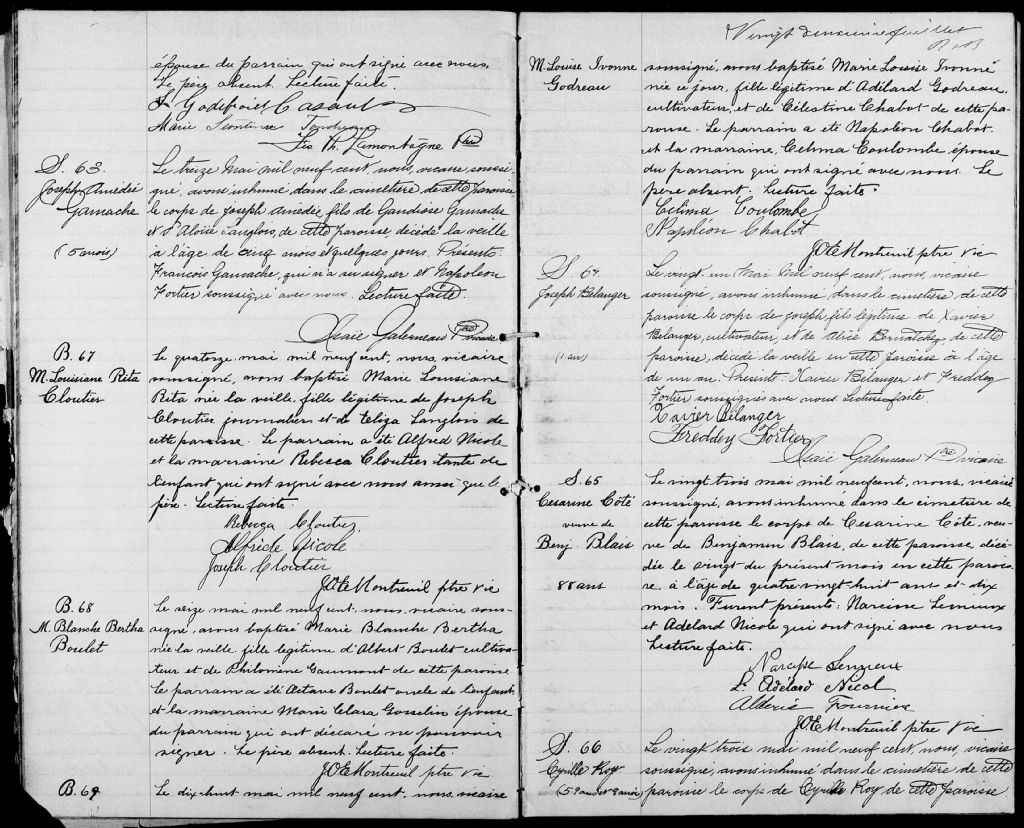 épouse du parrain qui ont signé avec nous.
Le père absent. Lecture faite.
Godefroi Casault
Marie Léontine
Ls Ph. Lamontagne Ptre
S. 63.
Joseph Amédée
Gamache
(5 mois)
Le treize mai mil neuf cent, nous, vicaire soussi-
gné, avons inhumé dans le cimetière de cette paroisse
le corps de Joseph Amédée, fils de Gaudiose Gamache
et d'Aloïse Langlois, de cette paroisse, décédé la veille
à l'âge de cinq mois et quelques jours. Présents
François Gamache, qui n'a su signer et Napoléon
Fortier soussigné avec nous. Lecture faite.
Isaïe Galerneau Ptre vicaire
B. 67
M. Louisiane Rita
Cloutier
Le quatorze mai mil neuf cent, nous, vicaire
soussigné, avons baptisé Marie Louisiane
Rita née la veille, fille légitime de Joseph
Cloutier journalier et de Eliza Langlois de
cette paroisse. Le parrain a été Alfred Nicole
et la marraine Rebecca Cloutier tante de
l'enfant qui ont signé avec nous ainsi que le
père. Lecture faite.
Rebecca Cloutier
Alfride Nicole
Joseph Cloutier
J.O.E. Montreuil ptre vic
B. 68
M. Blanche Bertha
Boulet
Le seize mai mil neuf cent, nous, vicaire sous-
signé, avons baptisé Marie Blanche Bertha
née la veille, fille légitime d'Albert Boulet cultiva-
teur et de Philomène Gaumont de cette paroisse
Le parrain a été Octave Boulet oncle de l'enfant
et la marraine Marie Clara Gosselin épouse
du parrain qui ont déclaré ne pouvoir
signer. Le père absent. Lecture faite.
J.O.E. Montreuil ptre Vic
B. 69
Le dix-huit mai mil neuf cent, nous, vicaire
Vingt deuxième feuillet
M. Louise Ivonne
Godreau
soussigné, avons baptisé Marie Louise Ivonne
née ce jour, fille légitime d'Adélard Godreau,
cultivateur, et de Célestine Chabot de cette pa-
roisse. Le parrain a été Napoléon Chabot
et la marraine, Célima Coulombe, épouse
du parrain qui ont signé avec nous. Le
père absent. Lecture faite.
Célima Coulombe
Napoléon Chabot
J.O.E. Montreuil ptre Vic
S. 64.
Joseph Bélanger
(1 an)
Le vingt un Mai mil neuf cent, nous, vicaire
soussigné, avons inhumé dans le cimetière, de cette
paroisse le corps de Joseph, fils légitime de Xavier
Bélanger, cultivateur, et de Alice Bernatchez de cette
paroisse, décédé la veille en cette paroisse à l'âge
de un an. Présent: Xavier Bélanger et Freddey
Fortier soussignés avec nous. Lecture faite.
Xavier Bélanger
Freddey Fortier
Isaïe Galerneau Ptre vicaire
S. 65
Césarine Côté
veuve de
Benj. Blais
88 ans
Le vingt trois mai mil neuf cent, nous, vicaire
soussigné, avons inhumé dans le cimetière de
cette paroisse le corps de Césarine Côté, veu-
ve de Benjamin Blais, de cette paroisse, décé-
dée le vingt du présent mois en cette parois-
se, à l'âge de quatre-vingt huit ans et dix
mois. Furent présents: Narcisse Lemieux
et Adélard Nicole qui ont signé avec nous
Lecture faite.
Narcisse Lemieux
L. Adélard Nicol
Aldéric Fournier
J.O.E. Montreuil ptre Vic
S. 66
Cyrille Roy
Le vingt trois mai mil neuf cent, nous, vicaire
soussigné, avons inhumé dans le cimetière de cette
paroisse le corps de Cyrille Roy de cette paroisse